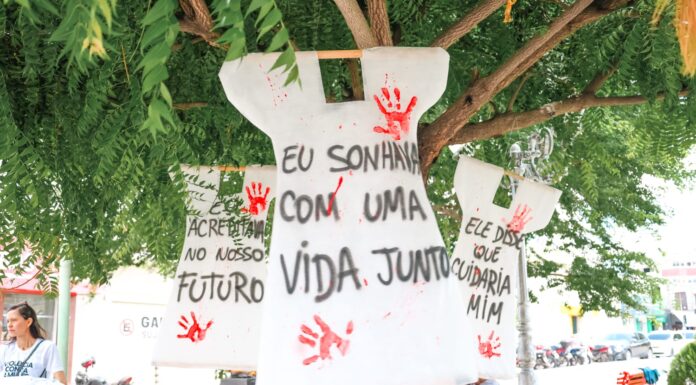 EU SONHAVA
COM UMA
VIDA JUNTO
E
ACREDITAVA
NO NOSSO
FUTURO
ELE DISSE
QUE
CUIDARIA
MIM
VIOLÊNCIA
CONTRA
GA